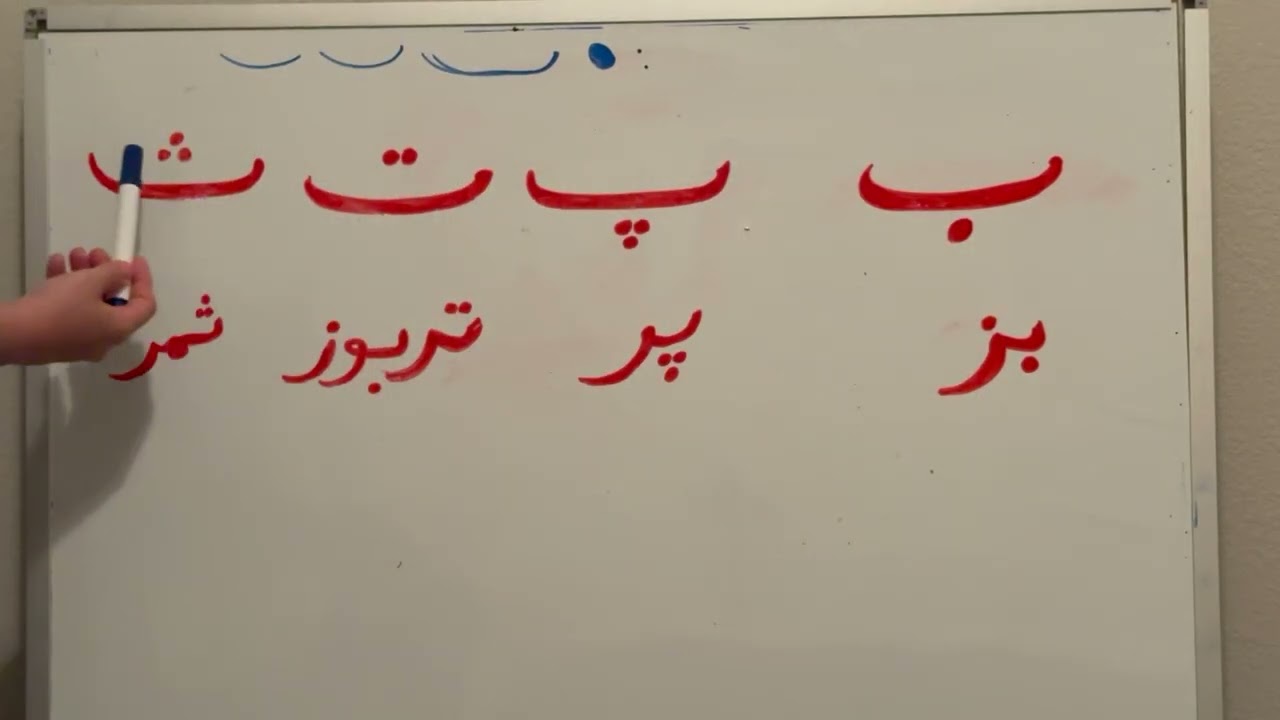 ب پ ت ث
بز پر تربوز ثمر